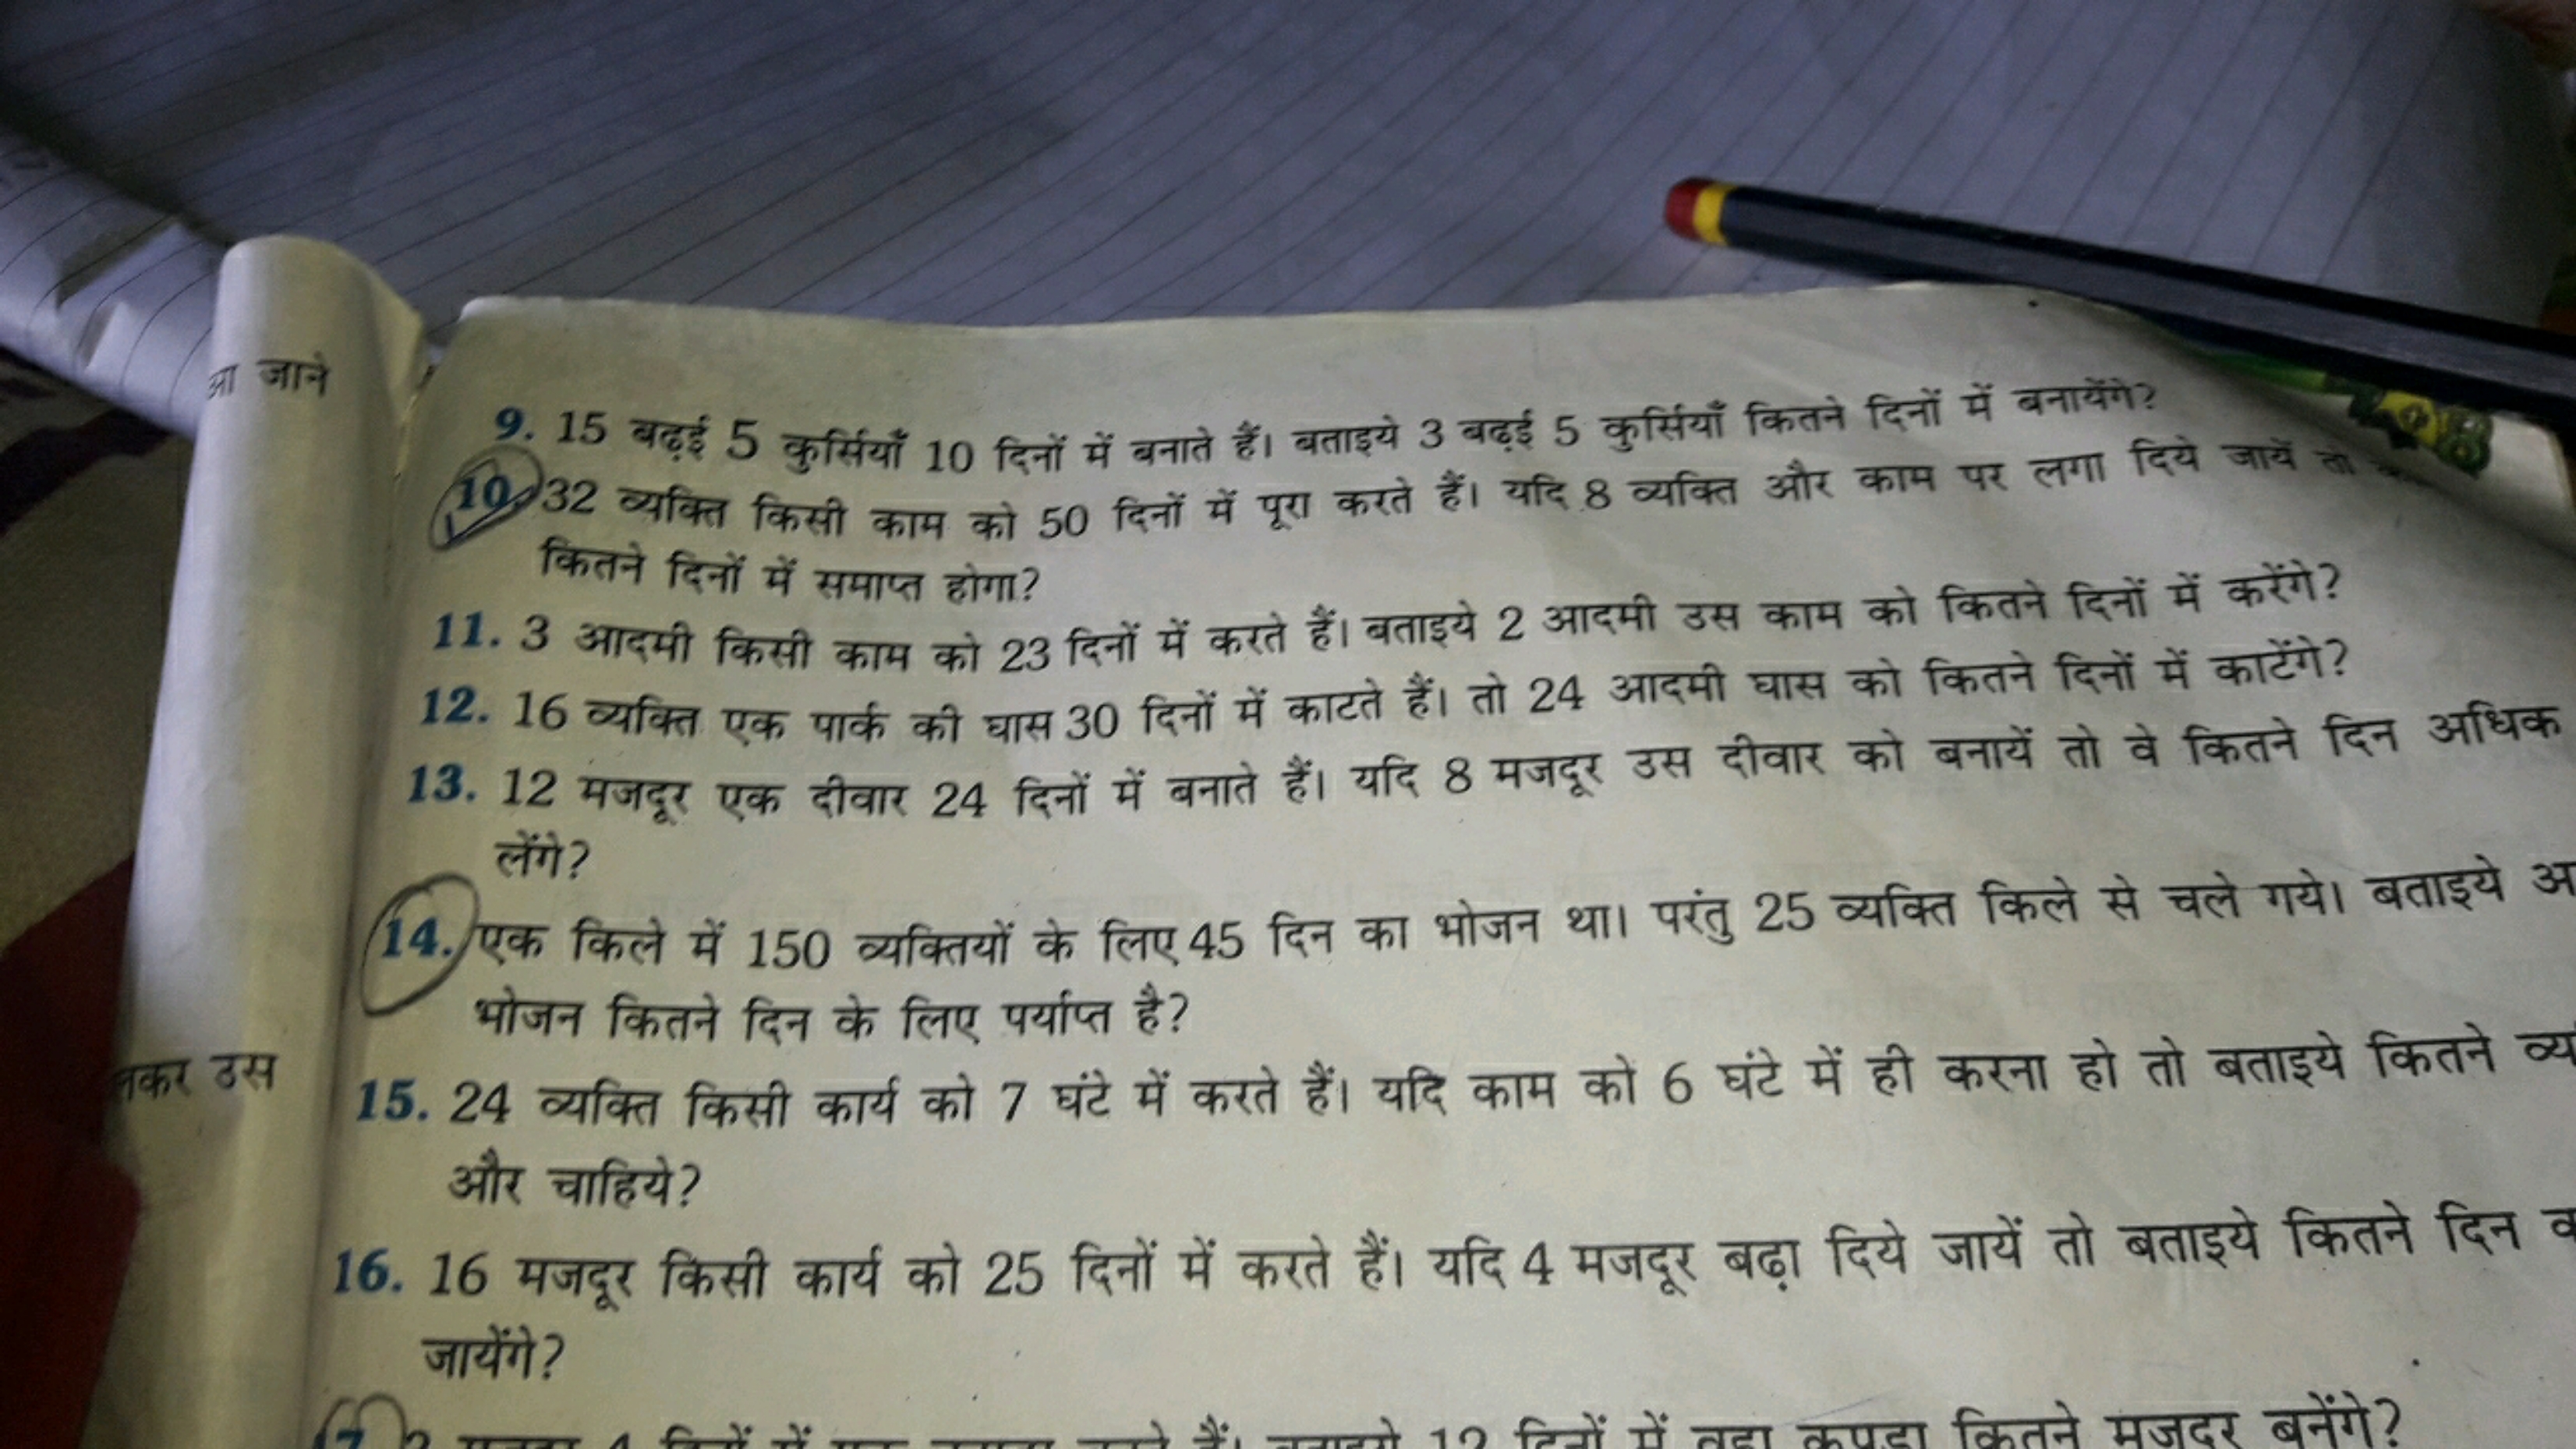 आ जाने
9. 15 बढ़ई 5 कुर्सियाँ 10 दिनों में बनाते हैं। बताइये 3 बढ़ई 5 कुर्सियाँ कितने दिनों में बनायेंगे?
10. 32 व्यक्ति किसी काम को 50 दिनों में पूरा करते हैं। यदि 8 व्यक्ति और काम पर लगा दिये जायें तो
कितने दिनों में समाप्त होगा?
11. 3 आदमी किसी काम को 23 दिनों में करते हैं। बताइये 2 आदमी उस काम को कितने दिनों में करेंगे?
12. 16 व्यक्ति एक पार्क की घास 30 दिनों में काटते हैं। तो 24 आदमी घास को कितने दिनों में काटेंगे?
13. 12 मजदूर एक दीवार 24 दिनों में बनाते हैं। यदि 8 मजदूर उस दीवार को बनायें तो वे कितने दिन अधिक
लेंगे?
14. एक किले में 150 व्यक्तियों के लिए 45 दिन का भोजन था। परंतु 25 व्यक्ति किले से चले गये। बताइये
भोजन कितने दिन के लिए पर्याप्त है?
उस
15. 24 व्यक्ति किसी कार्य को 7 घंटे में करते हैं। यदि काम को 6 घंटे में ही करना हो तो बताइये कितने
और चाहिये?
16. 16 मजदूर किसी कार्य को 25 दिनों में करते हैं। यदि 4 मजदूर बढ़ा दिये जायें तो बताइये कितने दिन
जायेंगे?
12 दिनों में वही कपड़ा कितने मजदूर बनेंगे?